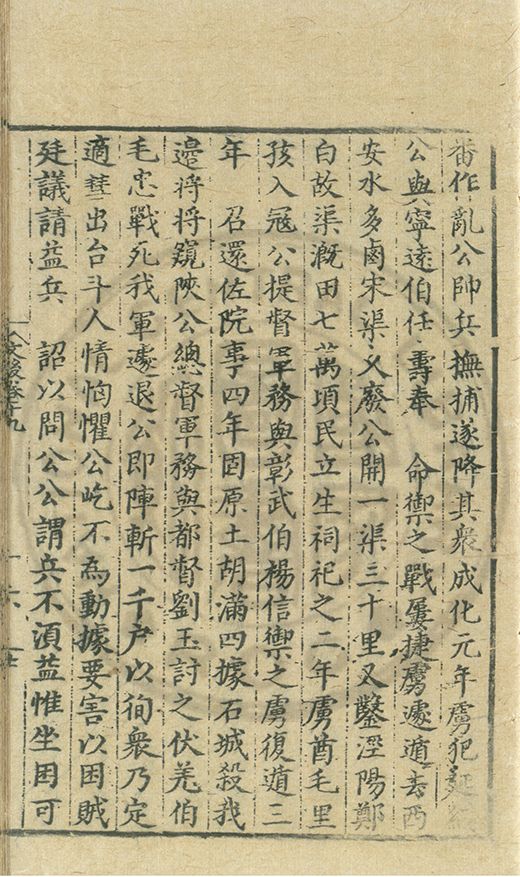 番作亂公帥兵撫捕遂降其衆成化元年虜犯延綏
公與寧遠伯任壽奉　命禦之戰屢捷虜遂遁去西
安水多鹵宋渠乂廢公開一渠三十里又鑿涇陽鄭
白故渠溉田七萬頃民立生祠祀之二年虜酋毛里
孩入寇公提督軍務與彰武伯楊信禦之虜復遁三
年　召還佐院事四年固原土胡滿四據石城殺我
邊將將窺陝公總督軍務與都督劉玉討之伏羌伯
毛忠戰死我軍遽退公即陣斬一千戶以徇衆乃定
適彗出台斗人情恟懼公屹不為動據要害以困賊
廷議請益兵　詔以問公公謂兵不湏益惟坐困可